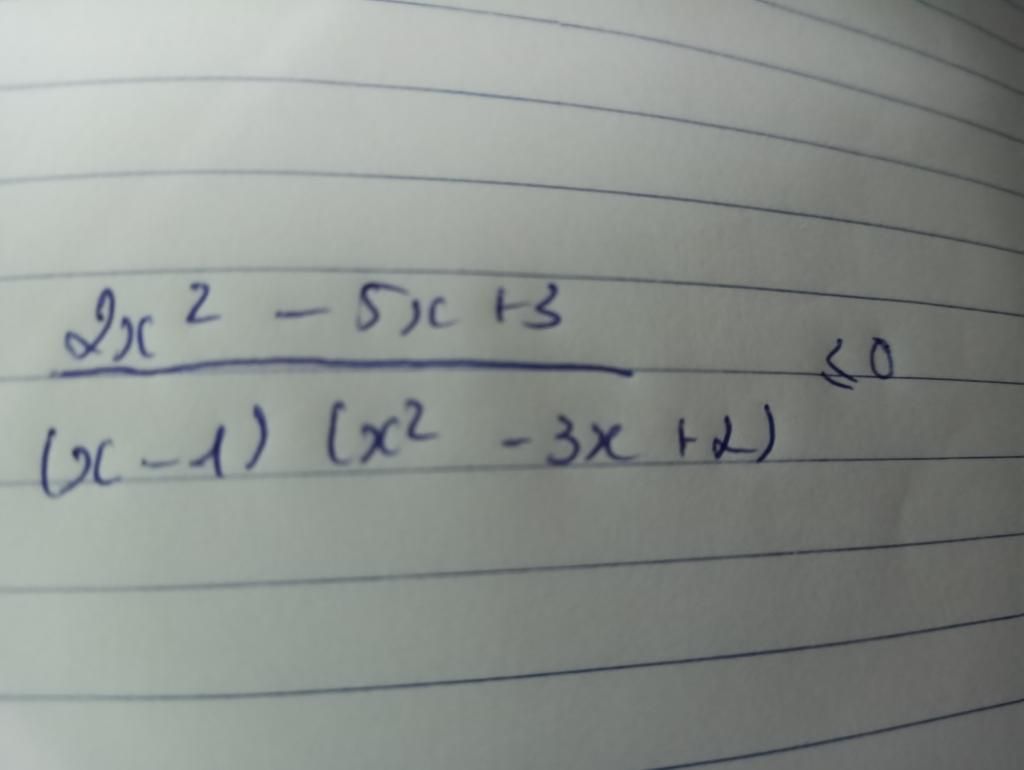 2x² - 5x + 3
≤ 0
(x - 1) (x² - 3x + 2)